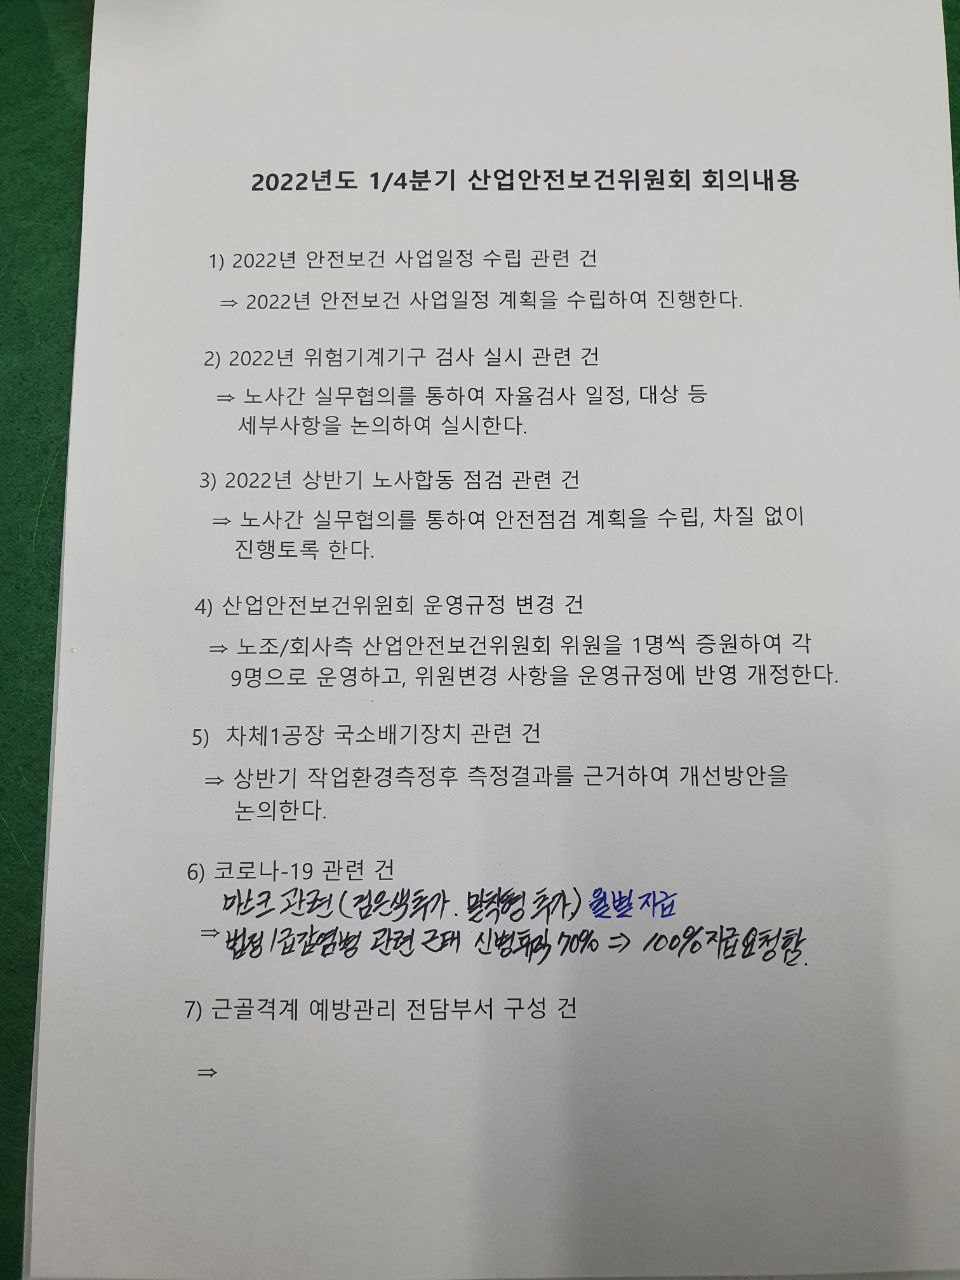 2022년도 1/4분기 산업안전보건위원회 회의내용
1) 2022년 안전보건 사업일정 수립 관련 건
⇒ 2022년 안전보건 사업일정 계획을 수립하여 진행한다.
2) 2022년 위험기계기구 검사 실시 관련 건
⇒ 노사간 실무협의를 통하여 자율검사 일정, 대상 등
세부사항을 논의하여 실시한다.
3) 2022년 상반기 노사합동 점검 관련 건
⇒ 노사간 실무협의를 통하여 안전점검 계획을 수립, 차질 없이
진행토록 한다.
4) 산업안전보건위원회 운영규정 변경 건
⇒ 노조/회사측 산업안전보건위원회 위원을 1명씩 증원하여 각
9명으로 운영하고, 위원변경 사항을 운영규정에 반영 개정한다.
5) 차체1공장 국소배기장치 관련 건
⇒ 상반기 작업환경측정후 측정결과를 근거하여 개선방안을
논의한다.
6) 코로나-19 관련 건
마스크 관련 (검은색 추가. 밀착형 추가) 월별 지급
⇒ 법정 1급감염병 관련 근태 신병휴직 70% ⇒ 100% 지급요청함.
7) 근골격계 예방관리 전담부서 구성 건
⇒